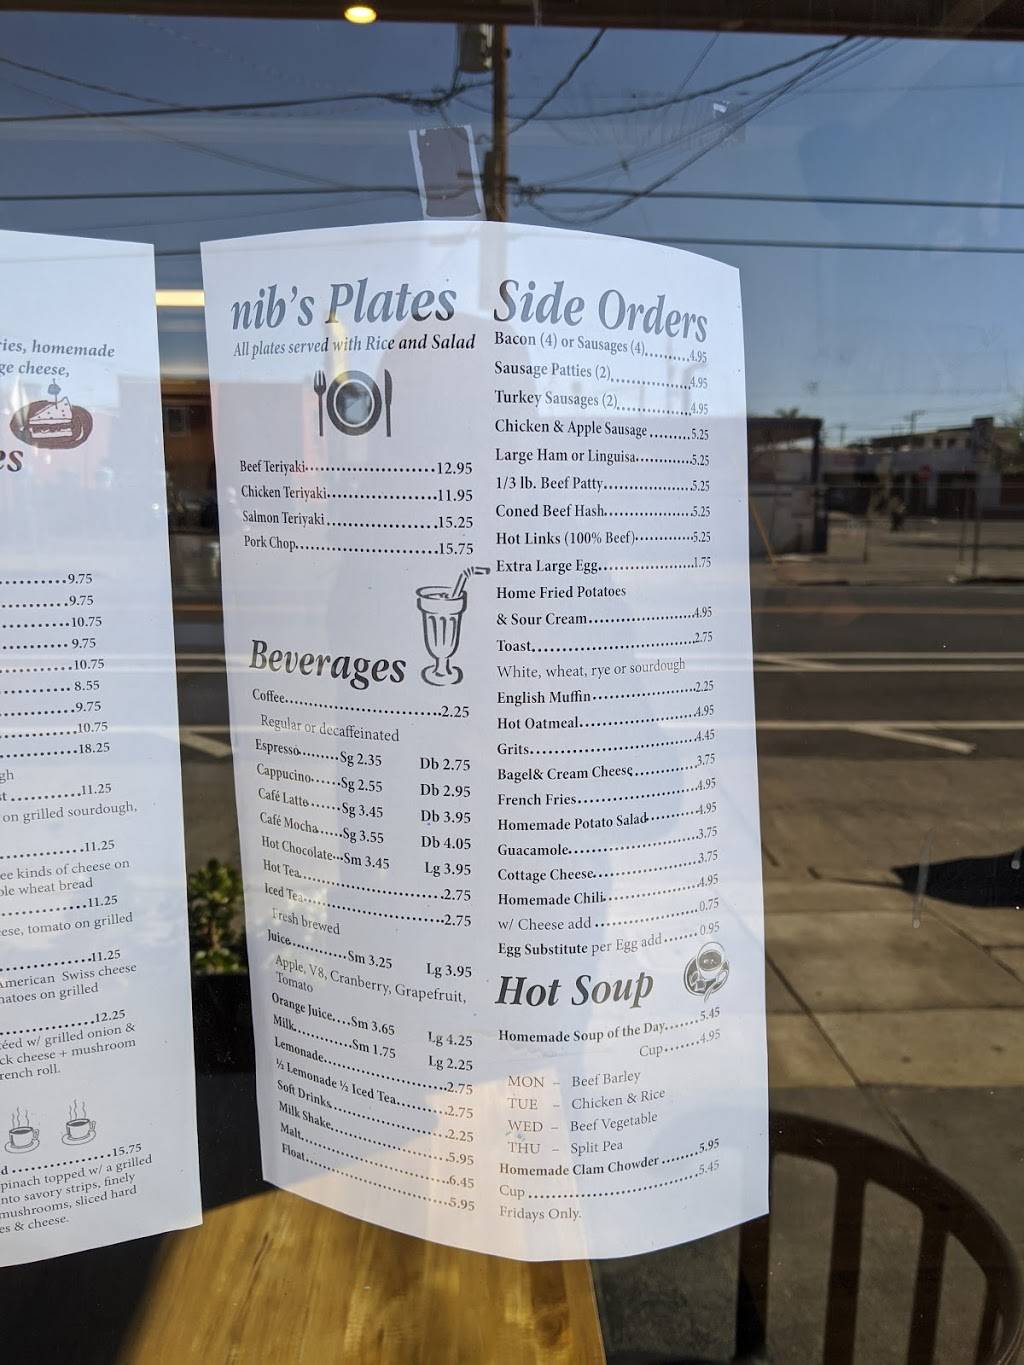 ries, homemade
ge cheese,
es
..........9.75
..........9.75
..........10.75
..........9.75
..........10.75
..........8.55
..........9.75
..........10.75
..........18.25
gh
st..........11.25
on grilled sourdough,
..........11.25
ee kinds of cheese on
ole wheat bread
..........11.25
ese, tomato on grilled
..........11.25
American Swiss cheese
matoes on grilled
..........12.25
téed w/ grilled onion &
ck cheese + mushroom
rench roll.
d..........15.75
pinach topped w/ a grilled
nto savory strips, finely
mushrooms, sliced hard
es & cheese.
nib's Plates
All plates served with Rice and Salad
Beef Teriyaki..........12.95
Chicken Teriyaki..........11.95
Salmon Teriyaki..........15.25
Pork Chop..........15.75
Beverages
Coffee..........2.25
Regular or decaffeinated
Espresso........Sg 2.35 Db 2.75
Cappucino......Sg 2.55 Db 2.95
Café Latte.......Sg 3.45 Db 3.95
Café Mocha.....Sg 3.55 Db 4.05
Hot Chocolate...Sm 3.45 Lg 3.95
Hot Tea..........2.75
Iced Tea..........2.75
Fresh brewed
Juice..........Sm 3.25 Lg 3.95
Apple, V8, Cranberry, Grapefruit,
Tomato
Orange Juice....Sm 3.65 Lg 4.25
Milk..........Sm 1.75 Lg 2.25
Lemonade..........2.75
½ Lemonade ½ Iced Tea..........2.75
Soft Drinks..........2.25
Milk Shake..........5.95
Malt..........6.45
Float..........5.95
Side Orders
Bacon (4) or Sausages (4)..........4.95
Sausage Patties (2)..........4.95
Turkey Sausages (2)..........4.95
Chicken & Apple Sausage.........5.25
Large Ham or Linguisa..........5.25
1/3 lb. Beef Patty..........5.25
Coned Beef Hash..........5.25
Hot Links (100% Beef)..........5.25
Extra Large Egg..........1.75
Home Fried Potatoes
& Sour Cream..........4.95
Toast..........2.75
White, wheat, rye or sourdough
English Muffin..........2.25
Hot Oatmeal..........4.95
Grits..........4.45
Bagel& Cream Cheese..........3.75
French Fries..........4.95
Homemade Potato Salad..........4.95
Guacamole..........3.75
Cottage Cheese..........3.75
Homemade Chili..........4.95
w/ Cheese add..........0.75
Egg Substitute per Egg add.......0.95
Hot Soup
Homemade Soup of the Day.......5.45
Cup.......4.95
MON – Beef Barley
TUE – Chicken & Rice
WED – Beef Vegetable
THU – Split Pea
Homemade Clam Chowder........5.95
Cup..........5.45
Fridays Only.